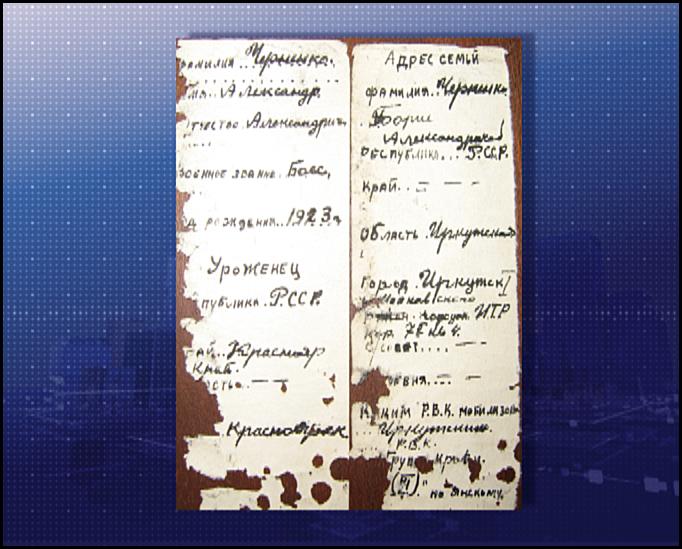 амилия... Чернышко.
мя... Александр.
тчество. Александрич
военное звание. Боец,
д рождения... 1923 г.
Уроженец
спублика. РССР.
ай... Краснояр
Край.
ость. — —
Красноярск
Адрес семьи
фамилия...
Борис
Александрович
Республика... РССР.
Край.. — — —
Область. Иркутская
Город. Иркутск
корпуса ИТР
— —
евня... — —
Каким Р.В.К. мобилизова
Иркутским
Р.В.К.
Группа крови.
(III)" по Янскому.